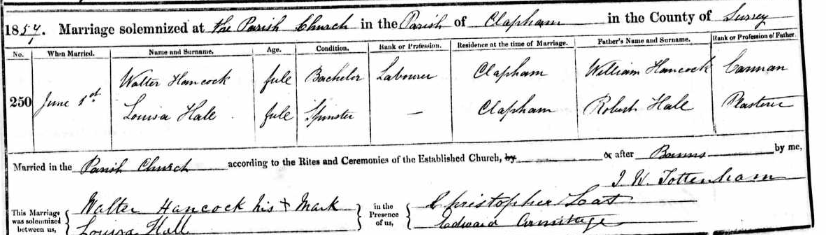 1857. Marriage solemnized at the Parish Church in the Parish of Clapham in the County of Surrey
No. When Married. Name and Surname. Age. Condition. Rank or Profession. Residence at the time of Marriage. Father's Name and Surname. Rank or Profession of Father.
Walter Hancock full Bachelor Labourer Clapham William Hancock Carman
250 June 1st
Louisa Hall full Spinster — Clapham Robert Hall Plasterer
Married in the Parish Church according to the Rites and Ceremonies of the Established Church, by or after Banns by me,
J. W. Tottenham
This Marriage was solemnized between us, Walter Hancock his + Mark in the Presence of us, Christopher
Louisa Hall Edward Armitage